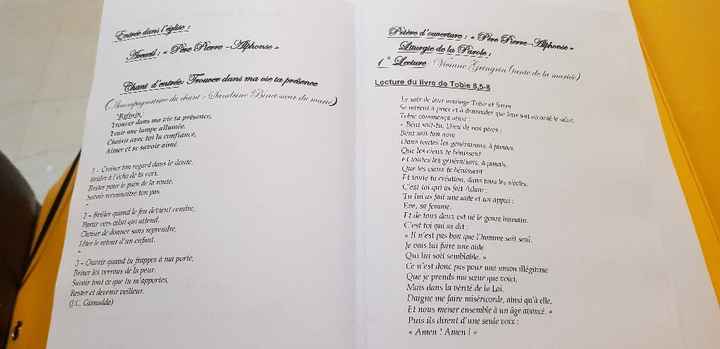 Entrée dans l'église :
Accueil : « Père Pierre - Alphonse »
Chant d'entrée: Trouver dans ma vie ta présence
(Accompagnatrice du chant - Sandrine sœur du marié)
Refrain,
Trouver dans ma vie ta présence,
Tenir une lampe allumée,
Choisir avec toi la confiance,
Aimer et se savoir aimé.
1 - Croiser ton regard dans le doute,
Brûler à l'écho de ta voix,
Rester pour le pain de la route,
Savoir reconnaître ton pas.
2 - Brûler quand le feu devient cendre,
Partir vers celui qui attend,
Choisir de donner sans reprendre,
Fêter le retour d'un enfant.
3 - Ouvrir quand tu frappes à ma porte,
Briser les verrous de la peur,
Savoir tout ce que tu m'apportes,
Rester et devenir veilleur.
(J.C. Gianadda)
Prière d'ouverture : « Père Pierre-Alphonse »
Liturgie de la Parole :
1° Lecture : Viviane (tante de la mariée)
Lecture du livre de Tobie 8,5-8
Le soir de leur mariage Tobie et Sarra
Se mirent à prier et à demander que leur soit accordé le salut.
Tobie commença ainsi :
« Béni sois-tu, Dieu de nos pères ;
Béni soit ton nom
Dans toutes les générations, à jamais.
Que les cieux te bénissent
Et toutes les générations, à jamais,
Que les cieux te bénissent
Et toute ta création, dans tous les siècles.
C'est toi qui as fait Adam
Tu lui as fait une aide et un appui :
Eve, sa femme.
Et de tous deux est né le genre humain.
C'est toi qui as dit :
« Il n'est pas bon que l'homme soit seul.
Je vais lui faire une aide
Qui lui soit semblable. »
Ce n'est donc pas pour une union illégitime
Que je prends ma sœur que voici,
Mais dans la vérité de la Loi.
Daigne me faire miséricorde, ainsi qu'à elle,
Et nous mener ensemble à un âge avancé. »
Puis ils dirent d'une seule voix :
« Amen ! Amen ! »